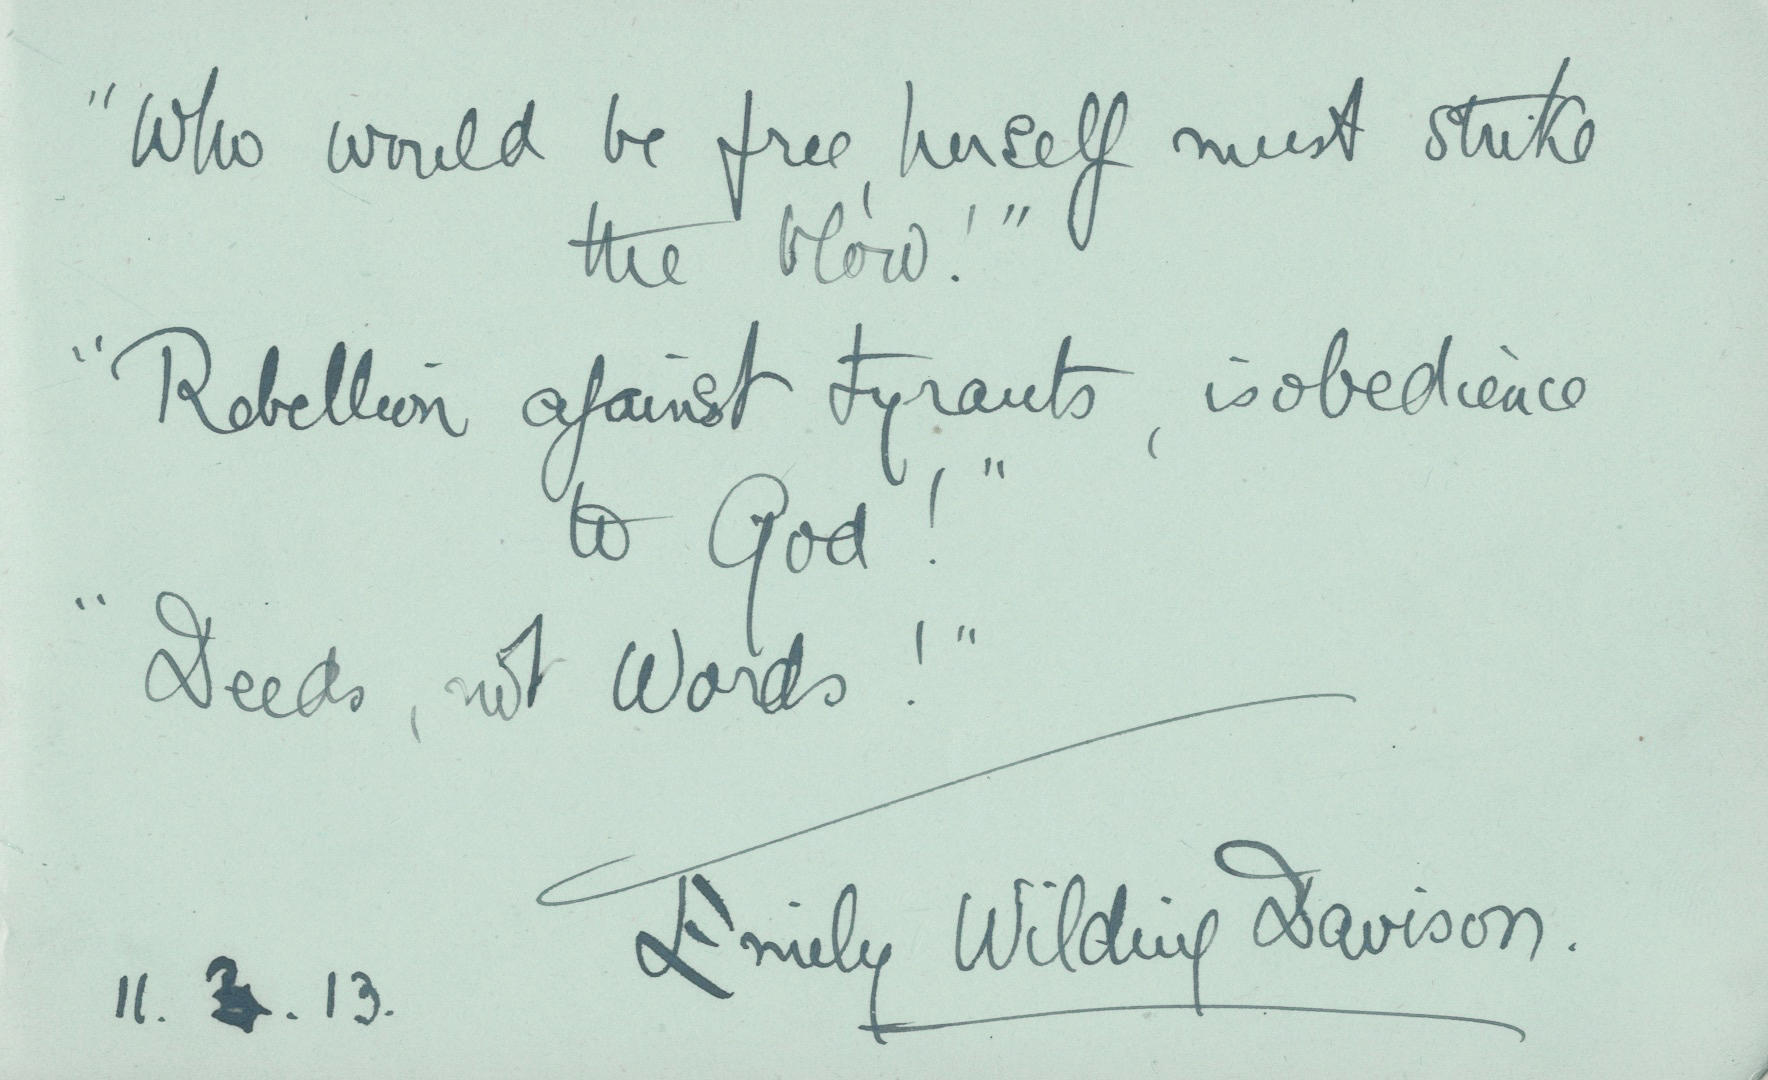 "Who would be free, herself must strike
the blow!"
"Rebellion against tyrants, is obedience
to God!"
"Deeds, not Words!"
Emily Wilding Davison.
11. . 13.